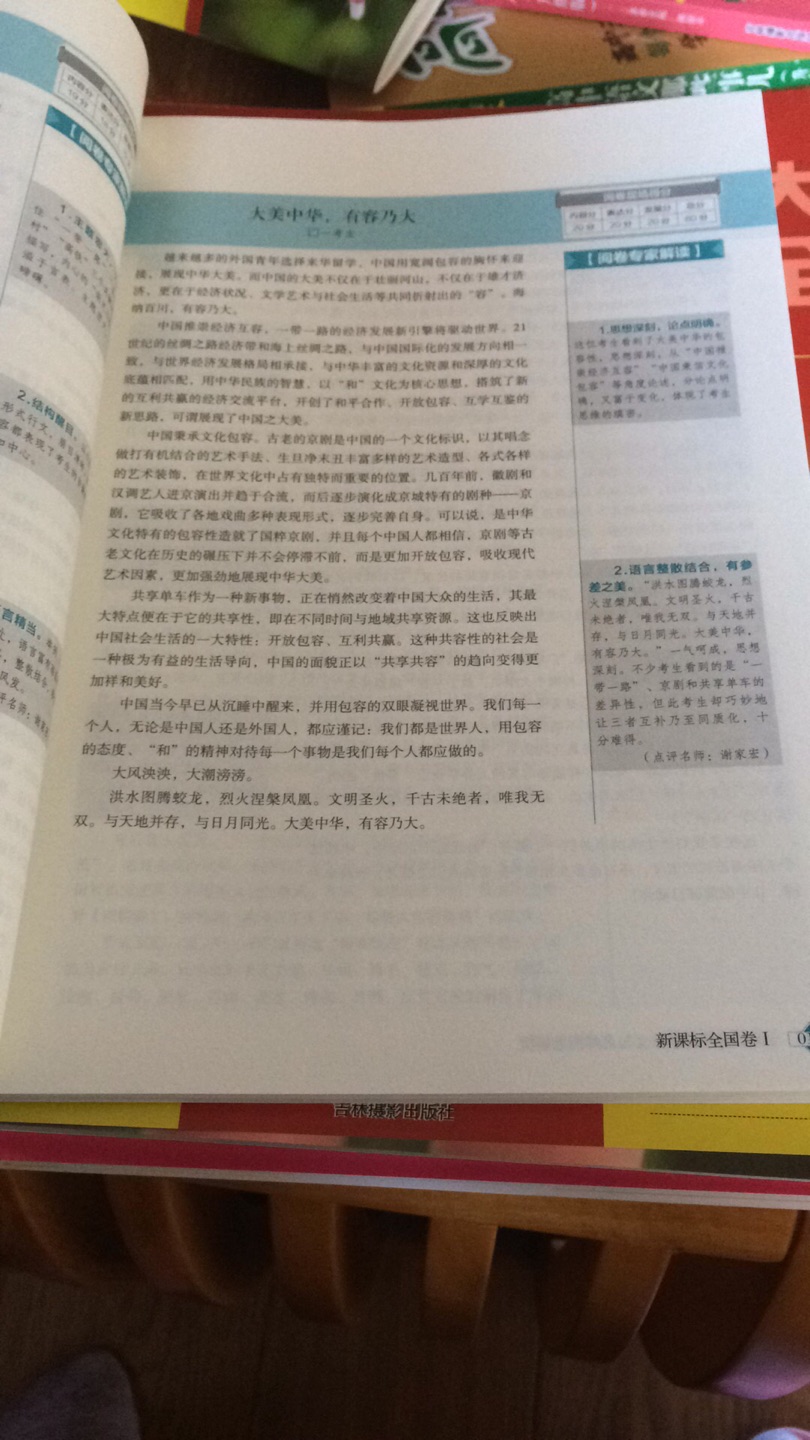 高中语文那些事儿
内容分
10分
大美中华，有容乃大
□一考生
阅卷现场得分
内容分 表达分 发展分 总分
20分 20分 20分 60分
越来越多的外国青年选择来华留学，中国用宽阔包容的胸怀来迎
接，展现中华大美。而中国的大美不仅在于壮丽河山，不仅在于雄才济
济，更在于经济状况、文学艺术与社会生活等共同折射出的“容”。海
纳百川，有容乃大。
中国推崇经济互容，一带一路的经济发展新引擎将驱动世界。21
世纪的丝绸之路经济带和海上丝绸之路，与中国国际化的发展方向相一
致，与世界经济发展格局相承接，与中华丰富的文化资源和深厚的文化
底蕴相匹配，用中华民族的智慧，以“和”文化为核心思想，搭筑了新
的互利共赢的经济交流平台，开创了和平合作、开放包容、互学互鉴的
新思路，可谓展现了中国之大美。
中国秉承文化包容。古老的京剧是中国的一个文化标识，以其唱念
做打有机结合的艺术手法、生旦净末丑丰富多样的艺术造型、各式各样
的艺术装饰，在世界文化中占有独特而重要的位置。几百年前，徽剧和
汉调艺人进京演出并趋于合流，而后逐步演化成京城特有的剧种——京
剧，它吸收了各地戏曲多种表现形式，逐步完善自身。可以说，是中华
文化特有的包容性造就了国粹京剧，并且每个中国人都相信，京剧等古
老文化在历史的碾压下并不会停滞不前，而是更加开放包容，吸收现代
艺术因素，更加强劲地展现中华大美。
共享单车作为一种新事物，正在悄然改变着中国大众的生活，其最
大特点便在于它的共享性，即在不同时间与地域共享资源。这也反映出
中国社会生活的一大特性：开放包容、互利共赢。这种共容性的社会是
一种极为有益的生活导向，中国的面貌正以“共享共容”的趋向变得更
加祥和美好。
中国当今早已从沉睡中醒来，并用包容的双眼凝视世界。我们每一
个人，无论是中国人还是外国人，都应谨记：我们都是世界人，用包容
的态度、“和”的精神对待每一个事物是我们每个人都应做的。
大风泱泱，大潮滂滂。
洪水图腾蛟龙，烈火涅槃凤凰。文明圣火，千古未绝者，唯我无
双。与天地并存，与日月同光。大美中华，有容乃大。
【阅卷专家解读】
1.思想深刻，论点明确。
这位考生看到了大美中华的包
容性，思想深刻，从“中国推
崇经济互容”“中国秉信文化
包容”等角度论述，中论点明
确，又富于变化，体现了考生
思维的缜密。
2.语言整散结合，有参
差之美。“洪水图腾蛟龙，烈
火涅槃凤凰。文明圣火，千古
未绝者，唯我无双。与天地并
存，与日月同光。大美中华，
有容乃大。”一气呵成，思想
深刻。不少考生看到的是“一
带一路”、京剧和共享单车的
差异性，但此考生却巧妙地
让三者互补乃至同质化，十
分难得。
（点评名师：谢家宏）
新课标全国卷Ⅰ
吉林摄影出版社